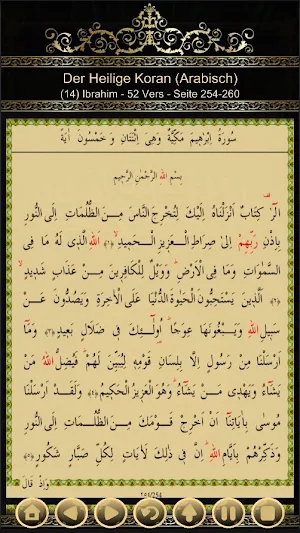 Der Heilige Koran (Arabisch)
(14) Ibrahim - 52 Vers - Seite 254-260
سُورَةُ اِبْرٰهِيمَ مَكِّيَّةٌ وَهِىَ اِثْنَتَانِ وَخَمْسُونَ اٰيَةً
بِسْمِ اللهِ الرَّحْمٰنِ الرَّحِيمِ
الٓرٰ كِتَابٌ اَنْزَلْنَاهُ اِلَيْكَ لِتُخْرِجَ النَّاسَ مِنَ الظُّلُمَاتِ اِلَى النُّورِ
بِاِذْنِ رَبِّهِمْ اِلٰى صِرَاطِ الْعَزِيزِ الْحَمِيدِ ﴿١﴾ اَللهِ الَّذِى لَهُ مَا فِى
السَّمٰوَاتِ وَمَا فِى الْاَرْضِ وَوَيْلٌ لِلْكَافِرِينَ مِنْ عَذَابٍ شَدِيدٍ
﴿٢﴾ اَلَّذِينَ يَسْتَحِبُّونَ الْحَيٰوةَ الدُّنْيَا عَلَى الْاٰخِرَةِ وَيَصُدُّونَ عَنْ
سَبِيلِ اللهِ وَيَبْغُونَهَا عِوَجًا اُولٰٓئِكَ فِى ضَلَالٍ بَعِيدٍ ﴿٣﴾ وَمَٓا
اَرْسَلْنَا مِنْ رَسُولٍ اِلَّا بِلِسَانِ قَوْمِهِ لِيُبَيِّنَ لَهُمْ فَيُضِلُّ اللهُ مَنْ
يَشَٓاءُ وَيَهْدِى مَنْ يَشَٓاءُ وَهُوَ الْعَزِيزُ الْحَكِيمُ ﴿٤﴾ وَلَقَدْ اَرْسَلْنَا
مُوسٰى بِاٰيَاتِنَٓا اَنْ اَخْرِجْ قَوْمَكَ مِنَ الظُّلُمَاتِ اِلَى النُّورِ
وَذَكِّرْهُمْ بِاَيَّامِ اللهِ اِنَّ فِى ذٰلِكَ لَاٰيَاتٍ لِكُلِّ صَبَّارٍ شَكُورٍ ﴿٥﴾
وَاِذْ قَالَ